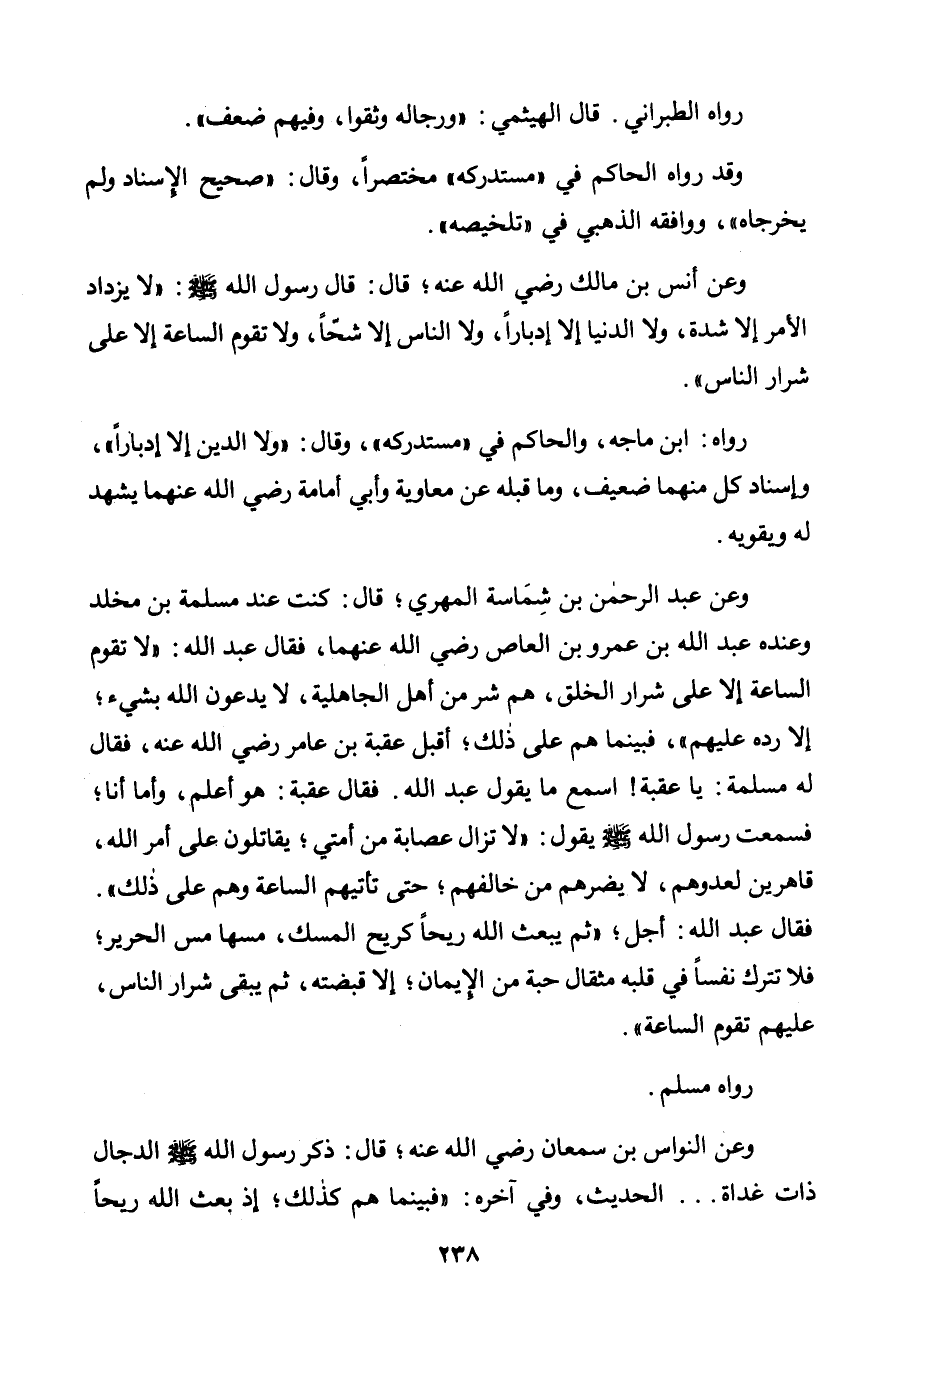 رواه الطبراني. قال الهيثمي: «ورجاله وثقوا، وفيهم ضعف».
وقد رواه الحاكم في «مستدركه» مختصراً، وقال: «صحيح الإسناد ولم
يخرجاه»، ووافقه الذهبي في «تلخيصه».
وعن أنس بن مالك رضي الله عنه؛ قال: قال رسول الله ﷺ: «لا يزداد
الأمر إلا شدة، ولا الدنيا إلا إدباراً، ولا الناس إلا شحّاً، ولا تقوم الساعة إلا على
شرار الناس».
رواه: ابن ماجه، والحاكم في «مستدركه»، وقال: «ولا الدين إلا إدباراً»،
وإسناد كل منهما ضعيف، وما قبله عن معاوية وأبي أمامة رضي الله عنهما يشهد
له ويقويه.
وعن عبد الرحمٰن بن شِمَاسة المهري؛ قال: كنت عند مسلمة بن مخلد
وعنده عبد الله بن عمرو بن العاص رضي الله عنهما، فقال عبد الله: «لا تقوم
الساعة إلا على شرار الخلق، هم شر من أهل الجاهلية، لا يدعون الله بشيء؛
إلا رده عليهم»، فبينما هم على ذٰلك؛ أقبل عقبة بن عامر رضي الله عنه، فقال
له مسلمة: يا عقبة! اسمع ما يقول عبد الله. فقال عقبة: هو أعلم، وأما أنا؛
فسمعت رسول الله ﷺ يقول: «لا تزال عصابة من أمتي؛ يقاتلون على أمر الله،
قاهرين لعدوهم، لا يضرهم من خالفهم؛ حتى تأتيهم الساعة وهم على ذٰلك».
فقال عبد الله: أجل؛ «ثم يبعث الله ريحاً كريح المسك، مسها مس الحرير؛
فلا تترك نفساً في قلبه مثقال حبة من الإيمان؛ إلا قبضته، ثم يبقى شرار الناس،
عليهم تقوم الساعة».
رواه مسلم.
وعن النواس بن سمعان رضي الله عنه؛ قال: ذكر رسول الله ﷺ الدجال
ذات غداة... الحديث، وفي آخره: «فبينما هم كذٰلك؛ إذ بعث الله ريحاً
٢٣٨